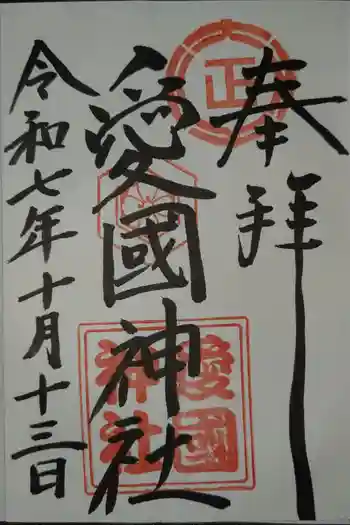 奉拝
正
愛國神社
愛國神社
令和七年十月十三日